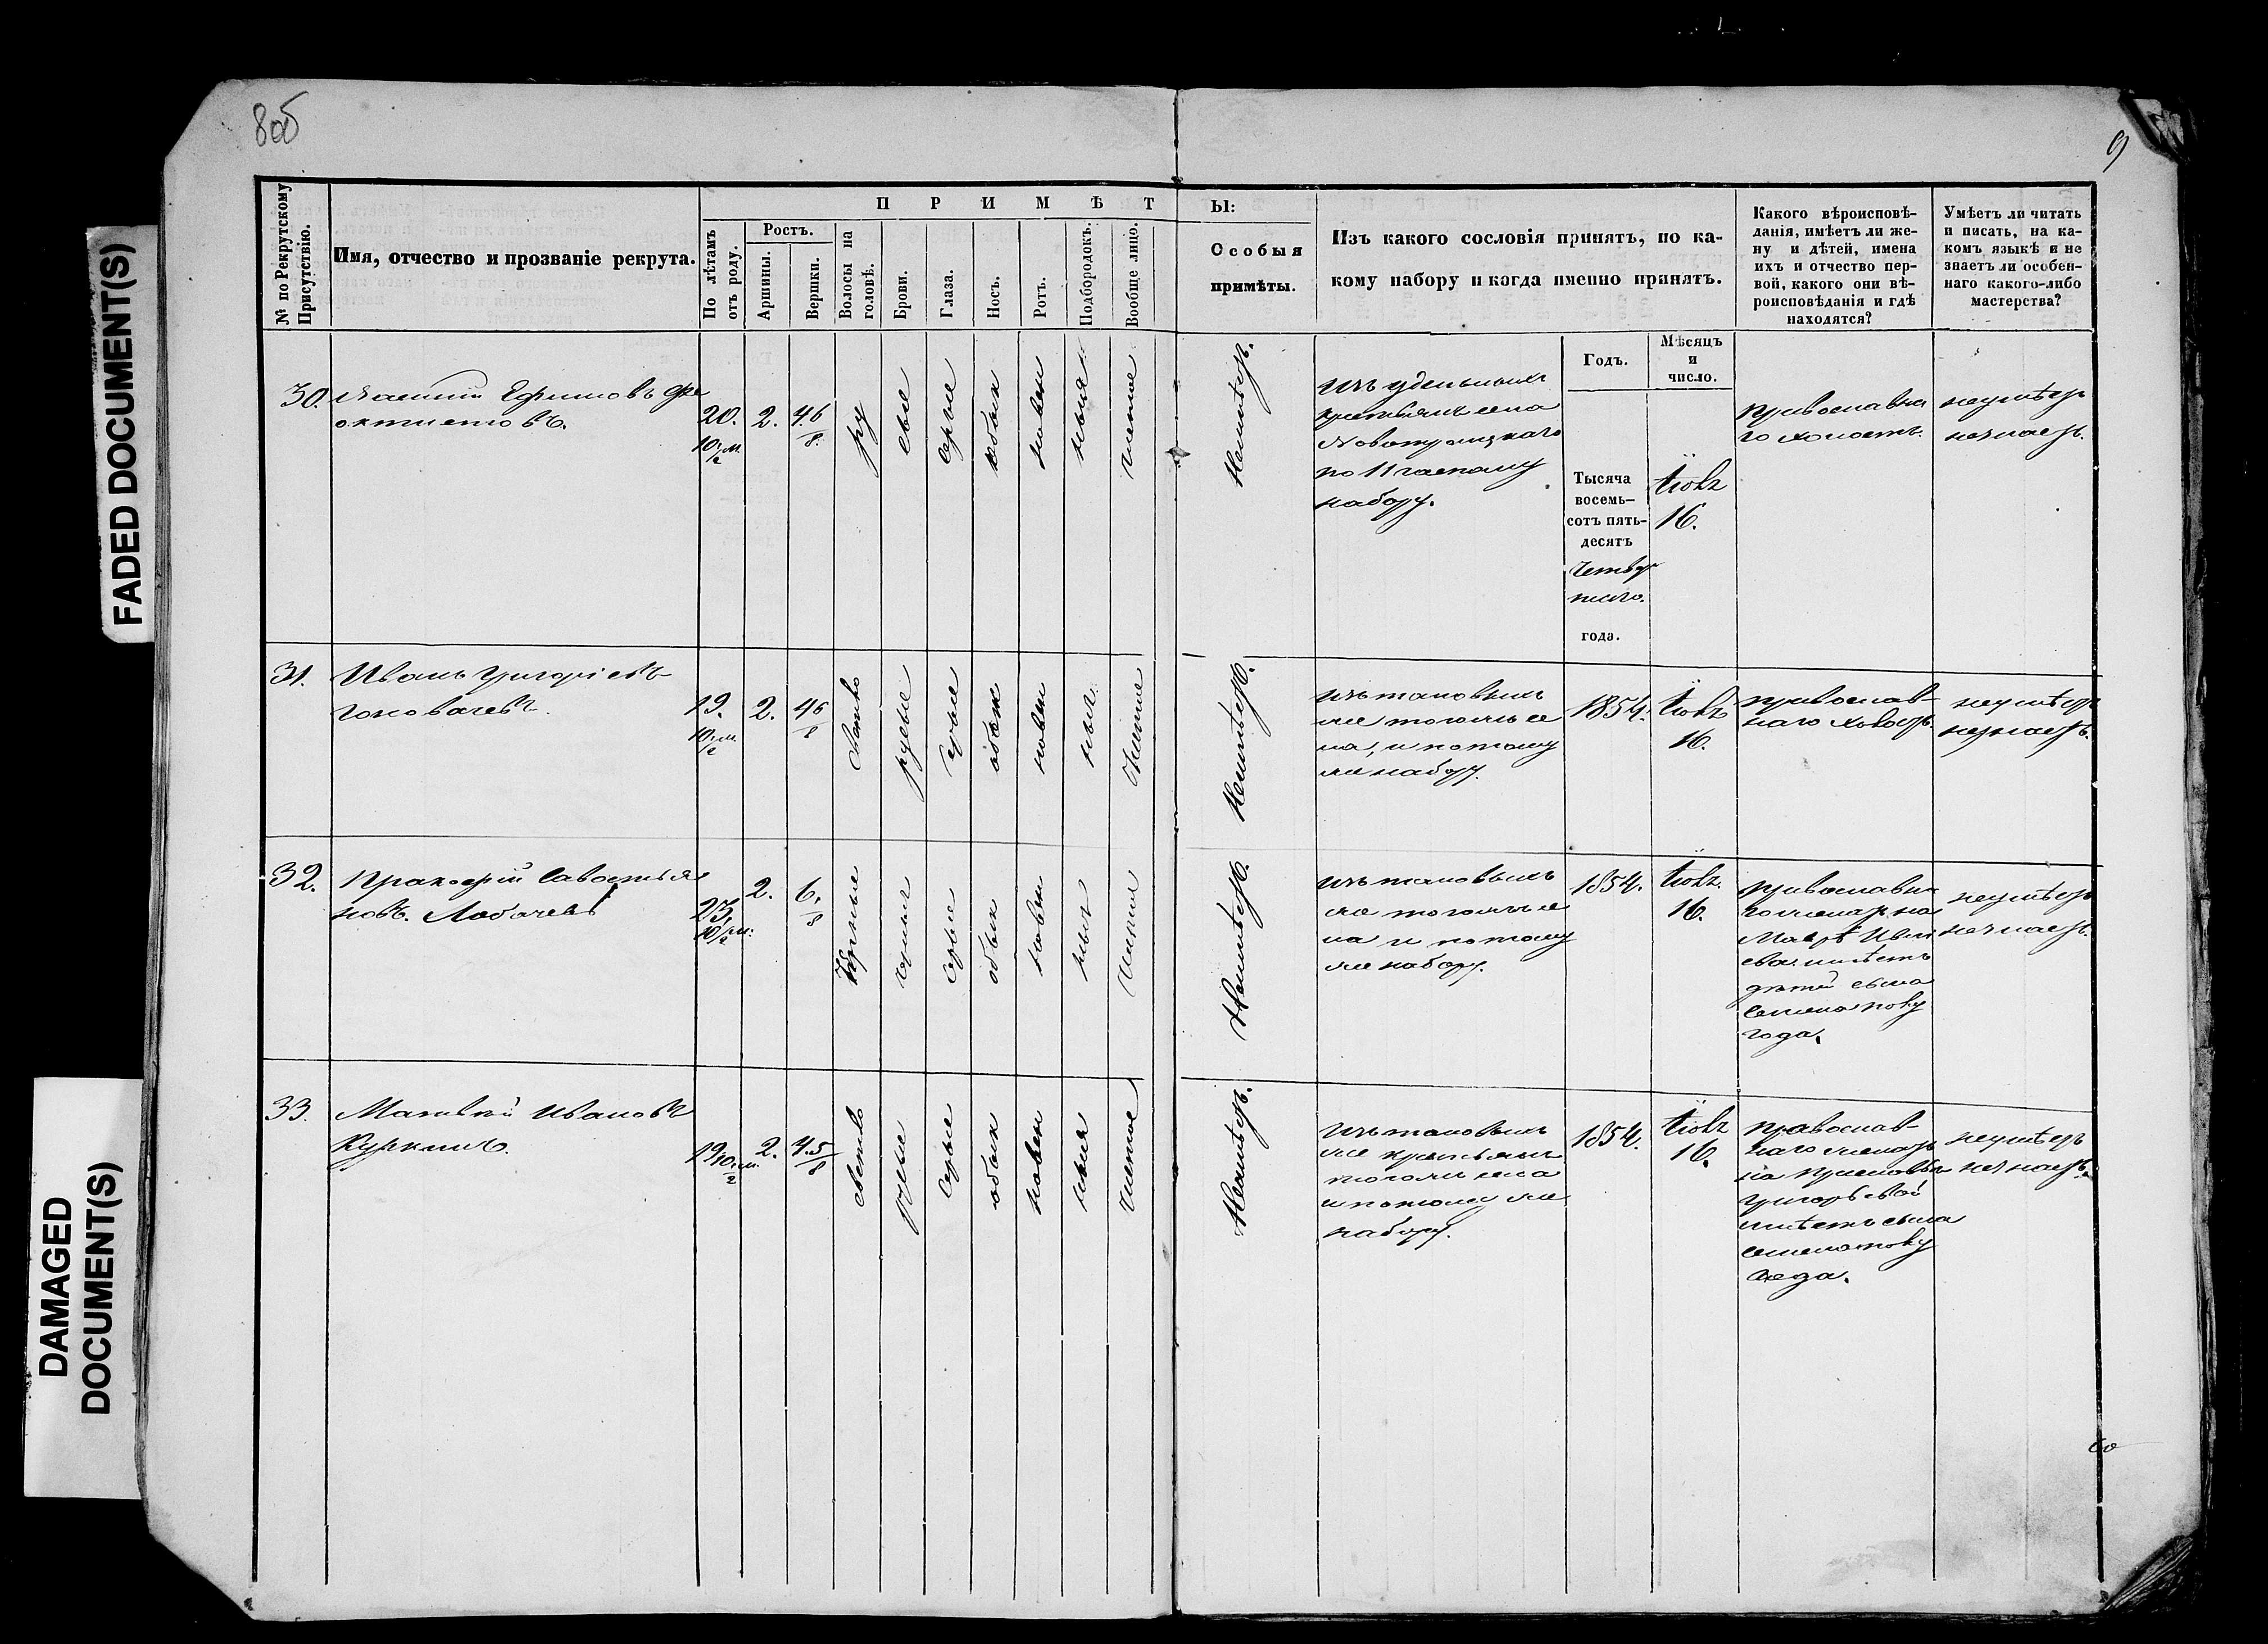 8об
9
FADED DOCUMENT(S)
DAMAGED
DOCUMENT(S)
№ по Рекрутскому
Присутствію.
Имя, отчество и прозваніе рекрута.
ПРИМѢТ
Ы:
По лѣтамъ
отъ роду.
Ростъ.
Аршины.
Вершки.
Волосы на
головѣ.
Брови.
Глаза.
Носъ.
Ротъ.
Подбородокъ.
Вообще лицо.
Особыя
примѣты.
Изъ какого сословія принятъ, по ка-
кому набору и когда именно принятъ.
Какого вѣроисповѣ-
данія, имѣетъ ли же-
ну и дѣтей, имена
ихъ и отчество пер-
вой, какого они вѣ-
роисповѣданія и гдѣ
находятся?
Умѣетъ ли читать
и писать, на ка-
комъ языкѣ и не
знаетъ ли особен-
наго какого-либо
мастерства?
Годъ.
Мѣсяцъ
и
число.
30.
Ефимовъ Фе
октистовъ.
20.
10/2 м.
2.
4 6/8.
ру
сые
серые
обык
новен
ныя
чистое
Неимѣетъ.
изъ удельныхъ
крестьянъ села
Новотроицкаго
по 11 частному
набору.
Тысяча
восемь-
сотъ пять-
десятъ
четвер
таго.
года.
Іюля
16.
православна
го холостъ.
неумѣетъ
незнаетъ.
31.
Иванъ Григорьевъ
19.
10/2 м.
2.
4 6/8
Светло
русые
серые
обык
новен
ныя.
Чистое
Неимѣетъ.
изъ таковыхъ
же тогожъ се
ла, и потому
же набору.
1854.
Іюля
16.
православ-
наго холостъ.
неумѣетъ
незнаетъ.
32.
Прокофій Савостья
новъ. Лобачевъ
23.
10/2 м.
2.
6/8
черные
серые
обык
новен
ныя
Чистое
Неимѣетъ.
изъ таковыхъ
же тогожъ се
ла и потому
же набору.
1854.
Іюля.
16.
православна
го женатъ на
Маврѣ Иван
евой имѣетъ
дѣтей сына
Семена полу
года.
неумѣетъ
незнаетъ.
33.
Матвѣй Ивановъ
Куркинъ.
19 10/2 м.
2.
4.5/8
светло
русые
Серые
обык
новен
ныя
чистое
Неимѣетъ.
изъ таковыхъ
же крестьянъ
тогожъ села
и потому же
набору.
1854.
Іюля
16.
православ-
наго женатъ
на
Григорьевой
имѣетъ сына
Семена полу
года.
неумѣетъ
незнаетъ.